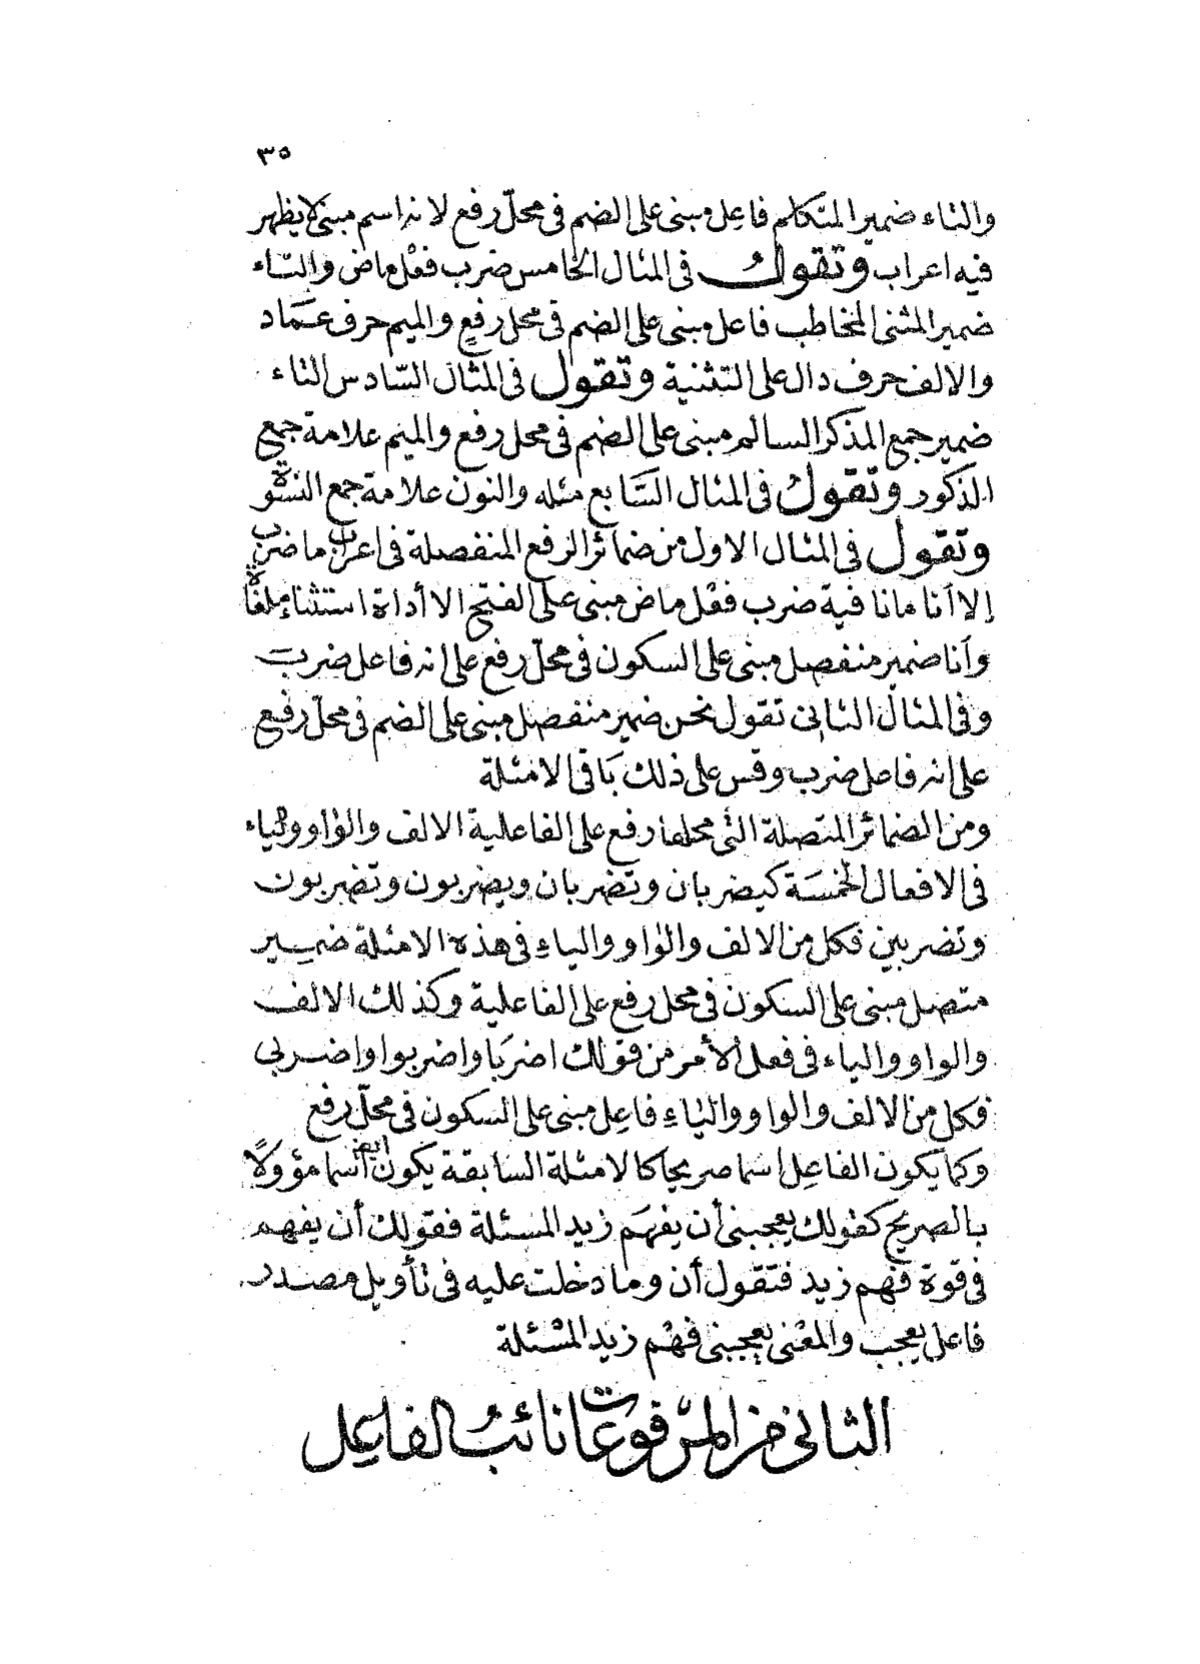 ٣٥
والتاء ضمير المتكلم فاعِل مبنى على الضم فى محلّ رفع لانه اسم مبنى لا يظهر
فيه اعراب وتقولُ فى المثال الخامس ضرب فعْل ماض والتاء
ضمير المثنى المخاطب فاعل مبنى على الضم فى محل رفعٍ والميم حرف عمَاد
والالف حرف دال على التثنية وتقول فى المثال السّادس التاء
ضمير جمع المذكر السالم مبنى على الضم فى محل رفع والميم علامة جمع
الذكور وتقولُ فى المثال السَّابع مثله والنون علامة جمع النسوة
وتقول فى المثال الاول من ضمائر الرفع المنفصلة فى اعراب ما ضرب
إلا أنا مانا فية ضرب فعْل ماض مبنى على الفتح الا أداة استثناء ملغاة
وأنا ضمير منفصل مبنى على السكون فى محلّ رفع على انه فاعل ضرب
وفى المثال الثانى تقول نحن ضمير منفصل مبنى على الضم فى محلّ رفع
على انه فاعل ضرب وقس على ذلك بَاقى الامثلة
ومن الضمائر المتصلة التى محلها رفع على الفاعلية الالف والواو والياء
فى الافعال الخمسَة كيضربان وتضربان ويضربون وتضربون
وتضربين فكل من الالف والواو والياءِ فى هذه الامثلة ضمير
متصل مبنى على السكون فى محل رفع على الفاعلية وكذلك الالف
والواو والياء فى فعل الأمر من قولك اضربَا واضربوا واضربى
فكل من الالف والواو والياءِ فاعِل مبنى على السكون فى محلّ رفع
وكما يكون الفاعِل اسما صريحا كالامثلة السابقة يكون ايضا اسما مؤولًا
بالصريح كقولك يعجبنى أن يفهَم زيد المسئلة فقولك أن يفهم
فى قوة فهم زيد فتقول أن وما دخلت عليه فى تأويل مصدر
فاعل يعجب والمعْنى يعجبنى فهْم زيد المسْئلة
الثانى من المرْفوعات نائبُ الفاعِل